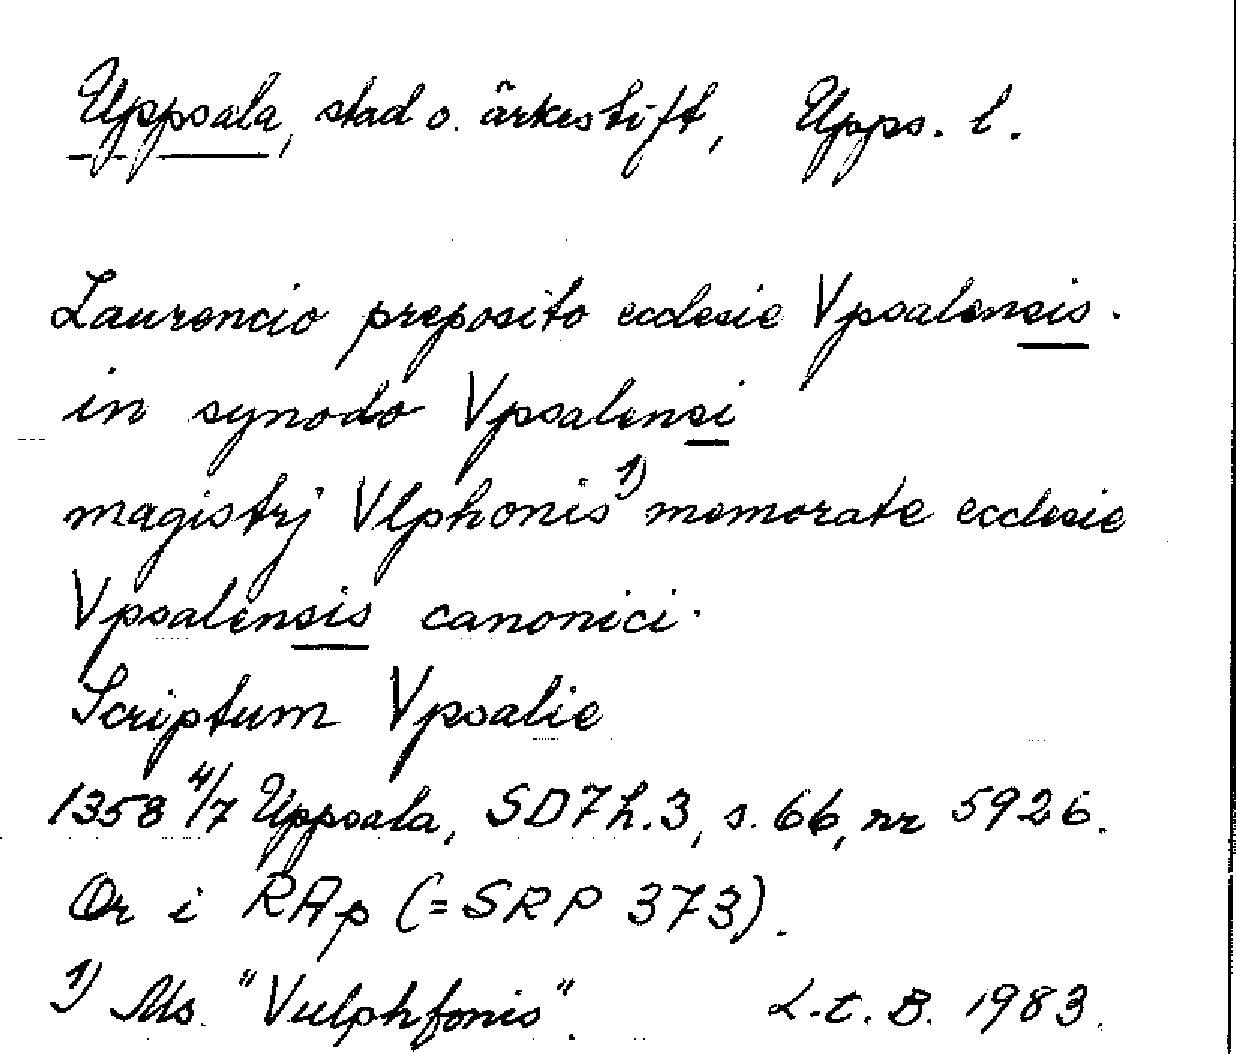 Uppsala, stad o. ärkestift, Upps. l.
Laurencio preposito ecclesie Vpsalensis.
in synodo Vpsalensi
magistrj Vlphonis 1) memorate ecclesie
Vpsalensis canonici.
Scriptum Vpsalie
1358 4/7 Uppsala, SD7 h.3, s. 66, nr 5926.
Or i RAp (=SRP 373).
1) Ms. "Vulphfonis". L.t. B. 1983.